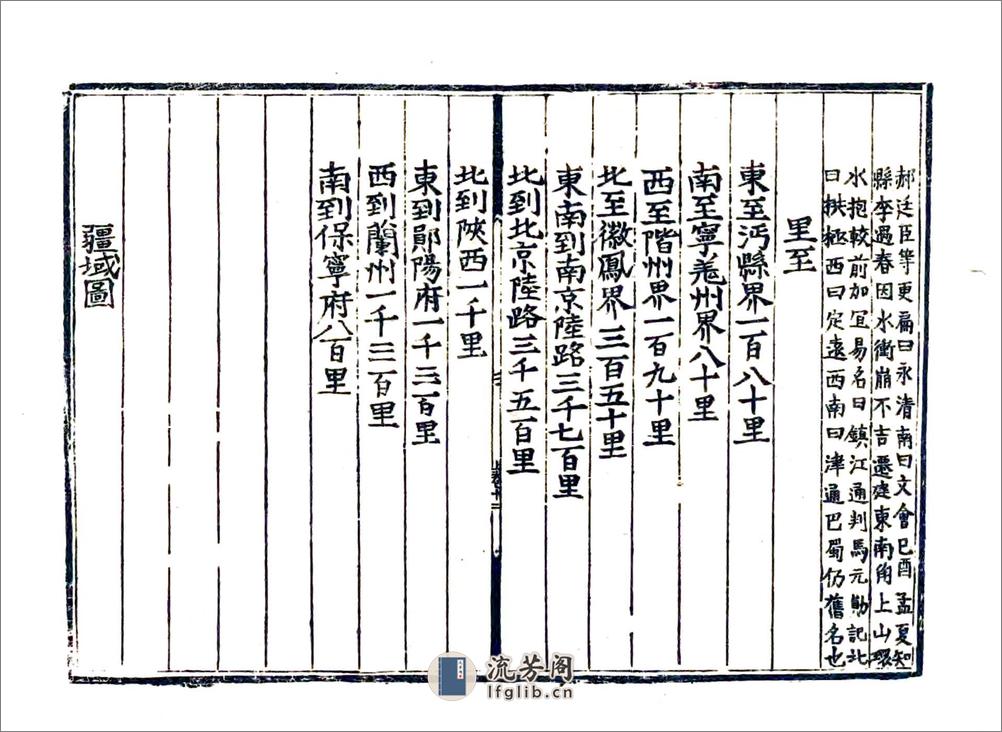 郝廷臣等更扁曰永清南曰文會巳酉孟夏知
縣李遇春因水衝崩不吉遷建東南角上山環
水抱較前加宜易名曰鎮江通判馬元勛記北
曰拱極西曰定遠西南曰津通巴蜀仍舊名也
里至
東至沔縣界一百八十里
南至寧羌州界八十里
西至階州界一百九十里
北至徽鳳界三百五十里
東南到南京陸路三千七百里
北到北京陸路三千五百里
北到陝西一千里
東到鄖陽府一千三百里
西到蘭州一千三百里
南到保寧府八百里
疆域圖
流芳阁
lfglib.cn